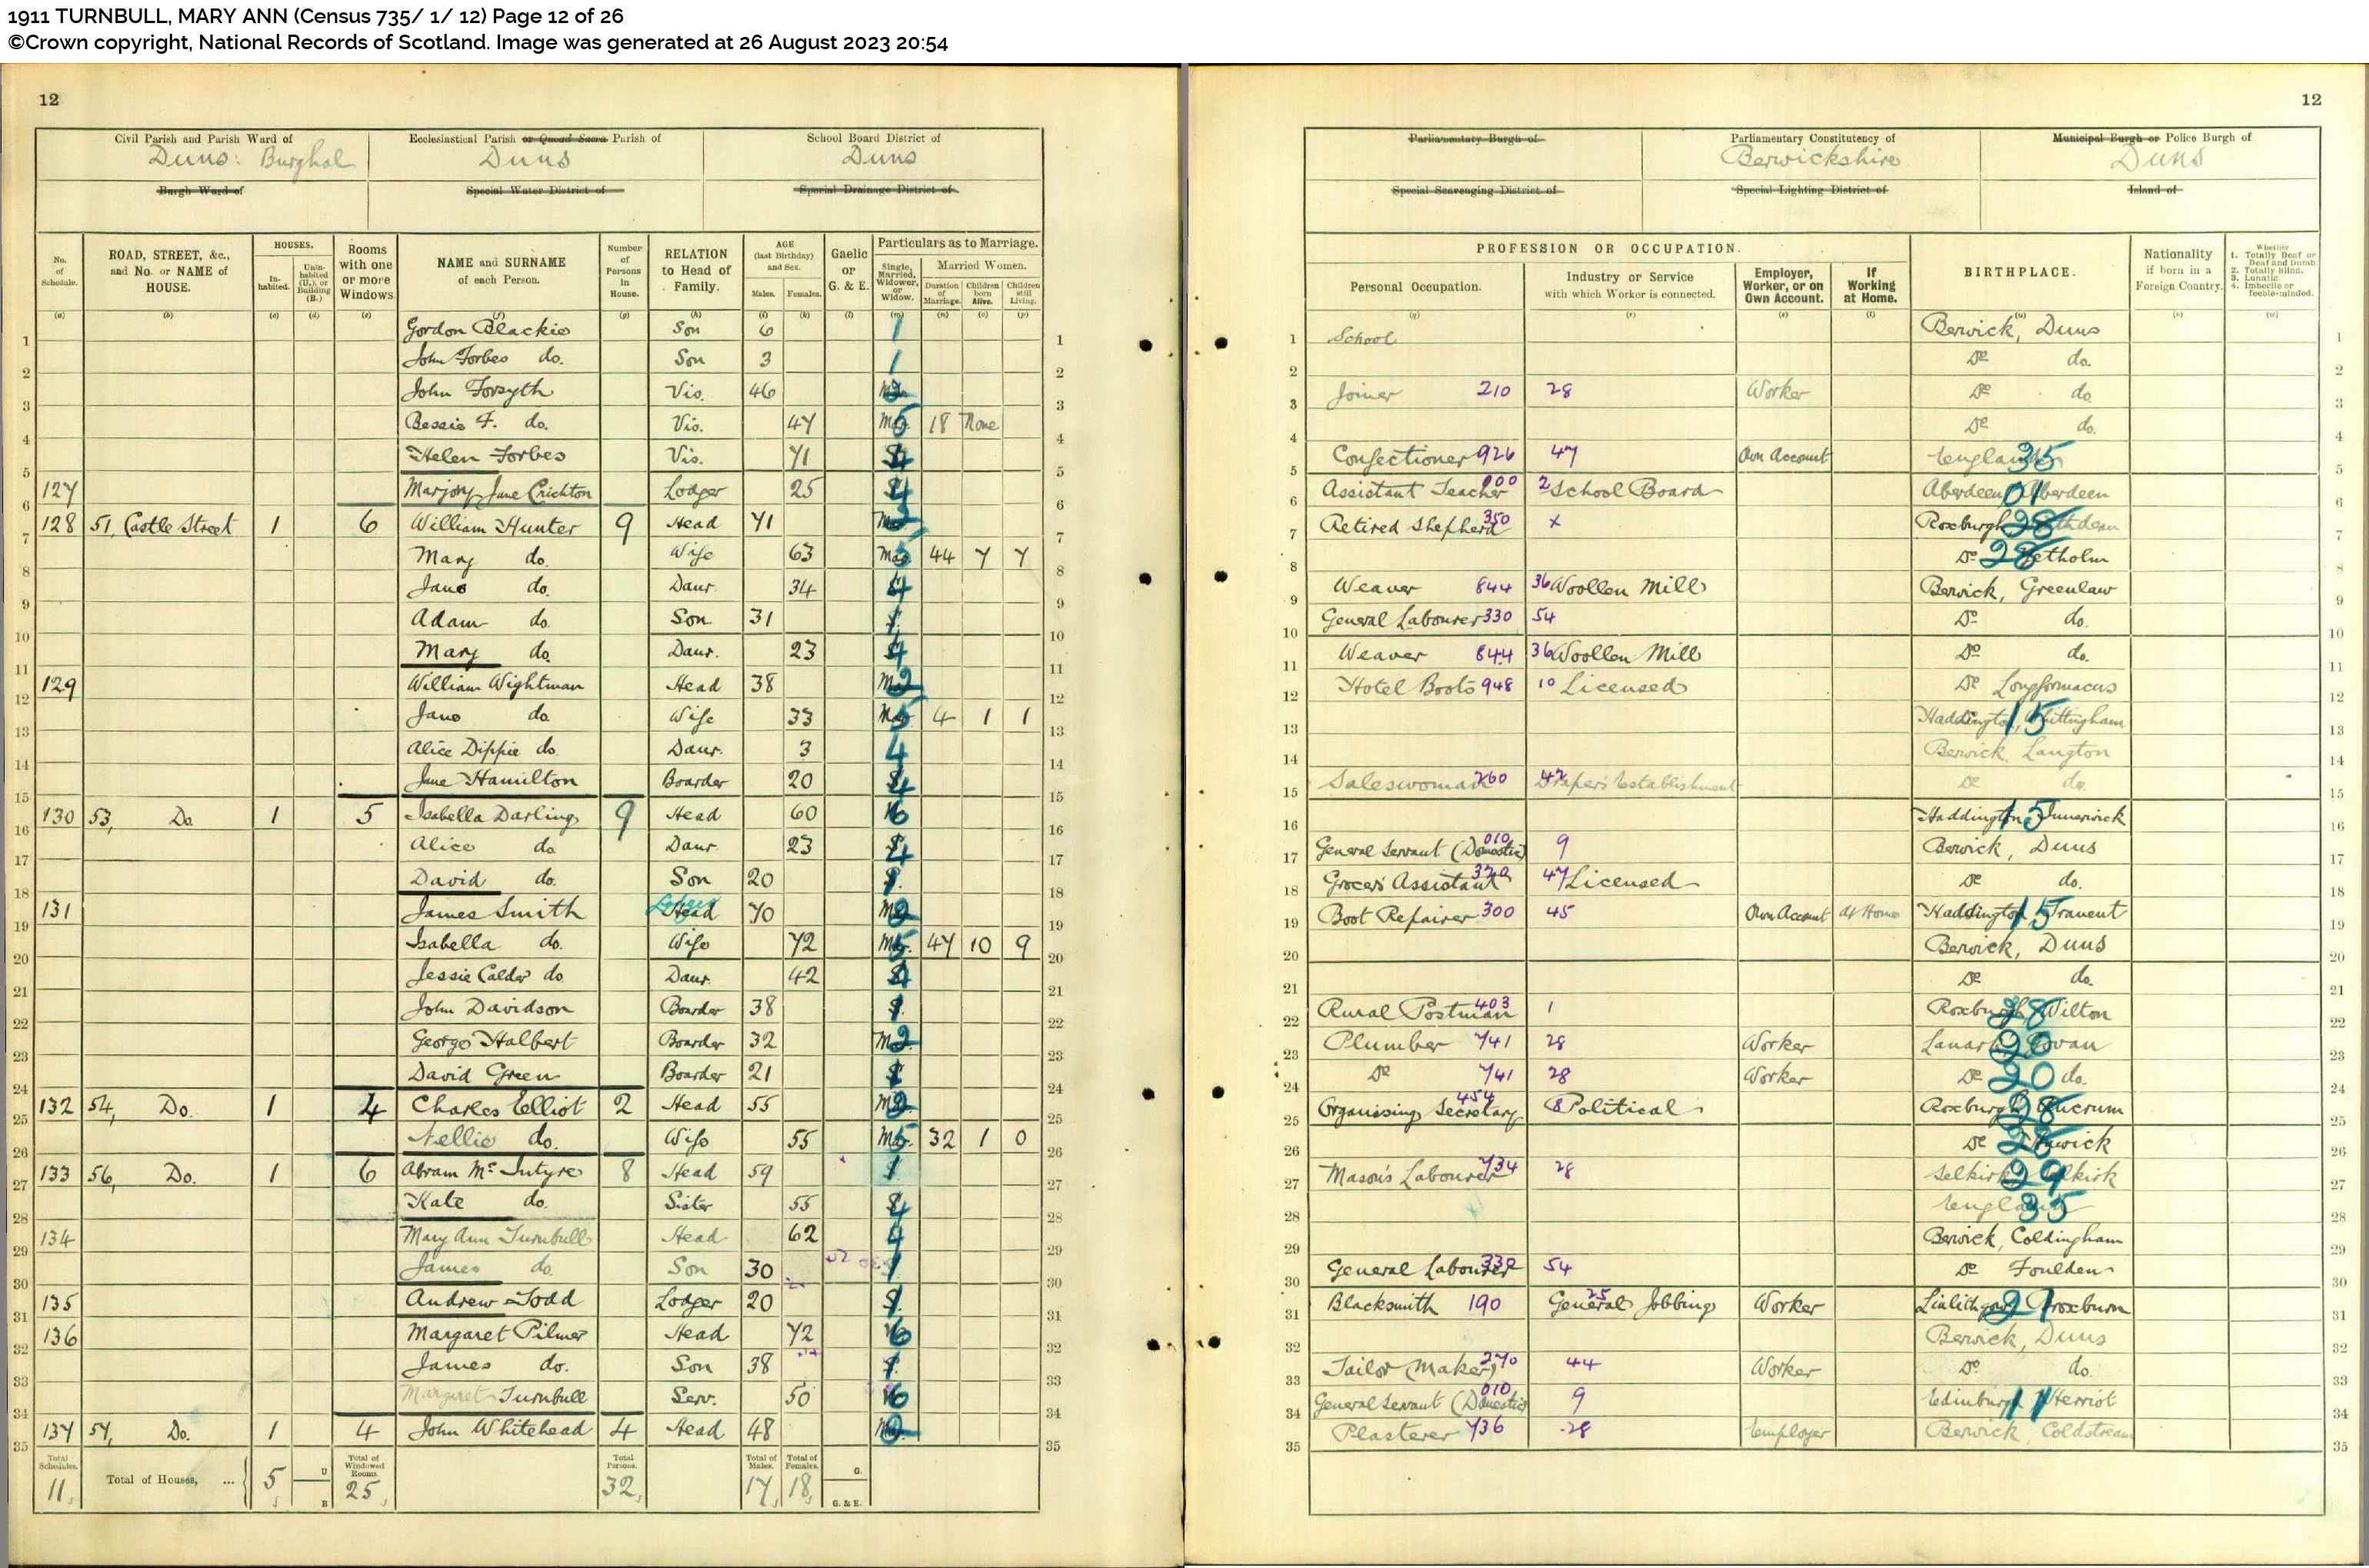 1911 TURNBULL, MARY ANN (Census 735/ 1/ 12) Page 12 of 26
©Crown copyright, National Records of Scotland. Image was generated at 26 August 2023 20:54
12 12
Civil Parish and Parish Ward of Ecclesiastical Parish or Quoad Sacra Parish of School Board District of Parliamentary Burgh of Parliamentary Constitutency of Municipal Burgh or Police Burgh of
Duns: Burghal Duns Duns Berwickshire Duns
Burgh Ward of Special Water District of Special Drainage District of Special Scavenging District of Special Lighting District of Island of
No. of Schedule. ROAD, STREET, &c., and No. or NAME of HOUSE. HOUSES. Inhabited. Uninhabited (U.), or Building (B.) Rooms with one or more Windows NAME and SURNAME of each Person. Number of Persons in House. RELATION to Head of Family. AGE (last Birthday) and Sex. Males. Females. Gaelic or G. & E. Particulars as to Marriage. Single, Married, Widower, or Widow. Married Women. Duration of Marriage. Children born Alive. Children still Living.
PROFESSION OR OCCUPATION. Personal Occupation. Industry or Service with which Worker is connected. Employer, Worker, or on Own Account. If Working at Home. BIRTHPLACE. Nationality if born in a Foreign Country. Whether 1. Totally Deaf or Deaf and Dumb. 2. Totally Blind. 3. Lunatic. 4. Imbecile or feeble-minded.
1 Gordon Blackie Son 6 School Berwick, Duns
2 John Forbes do. Son 3 Do do.
3 John Forsyth Vis. 46 Joiner 210 28 Worker Do do
4 Bessie F. do. Vis. 47 18 None Do do.
5 Helen Forbes Vis. 71 Confectioner 926 47 Own Account England 35
6 127 Marjory Jane Crichton Lodger 25 Assistant Teacher 2 School Board Aberdeen, Aberdeen 01
7 128 51, Castle Street 1 6 William Hunter 9 Head 71 Retired Shepherd 350 x Roxburgh 28
8 Mary do. Wife 63 44 7 7 Do 28 Yetholm
9 Jane do. Daur. 34 Weaver 844 36 Woollen Mill Berwick, Greenlaw
10 Adam do. Son 31 General Labourer 330 54 Do do.
11 Mary do. Daur. 23 Weaver 844 36 Woollen Mill Do do.
12 129 William Wightman Head 38 Hotel Boots 948 10 Licensed Do Longformacus
13 Jane do. Wife 33 4 1 1 Haddington, Whittingham 15
14 Alice Dippie do. Daur. 3 4 Berwick, Langton
15 Jane Hamilton Boarder 20 Saleswoman 260 42 Drapers Establishment Do do.
16 130 53, Do. 1 5 Isabella Darling 9 Head 60 Haddington, Innerwick 15
17 Alice do. Daur. 23 General Servant (Domestic) 010 9 Berwick, Duns
18 David do. Son 20 Grocer's Assistant 47 Licensed Do do.
19 131 James Smith Lodger Head 70 Boot Repairer 300 45 Own Account At Home Haddington, Tranent 15
20 Isabella do. Wife 72 47 10 9 Berwick, Duns
21 Jessie Calder do. Daur. 42 Do do.
22 John Davidson Boarder 38 Rural Postman 403 1 Roxburgh, Wilton 28
23 George Halbert Boarder 32 Plumber 741 28 Worker Lanark, Govan 20
24 David Green Boarder 21 Do 741 28 Worker Do 20 do.
25 132 54, Do. 1 4 Charles Elliot 2 Head 55 Organising Secretary 454 8 Political Roxburgh, Ancrum 28
26 Nellie do. Wife 55 32 1 0 Do Hawick 28
27 133 56, Do. 1 6 Abram McIntyre 8 Head 59 Mason's Labourer 734 28 Selkirk, Selkirk 29
28 Kate do. Sister 55 England 35
29 134 Mary Ann Turnbull Head 62 Berwick, Coldingham
30 James do. Son 30 General Labourer 330 54 Do Foulden
31 135 Andrew Todd Lodger 20 Blacksmith 190 25 General Jobbing Worker Linlithgow, Broxburn 21
32 136 Margaret Pilmer Head 72 Berwick, Duns
33 James do. Son 38 Tailor (Maker) 270 44 Worker Do do.
34 Margaret Turnbull Serv. 50 General Servant (Domestic) 010 9 Edinburgh, Herriot 11
35 137 57, Do. 1 4 John Whitehead 4 Head 48 Plasterer 736 28 Employer Berwick, Coldstream
Total Schedules. 11 Total of Houses, ... 5 U B Total of Windowed Rooms. 25 Total Persons. 32 Total of Males. 17 Total of Females. 18 G. G. & E.